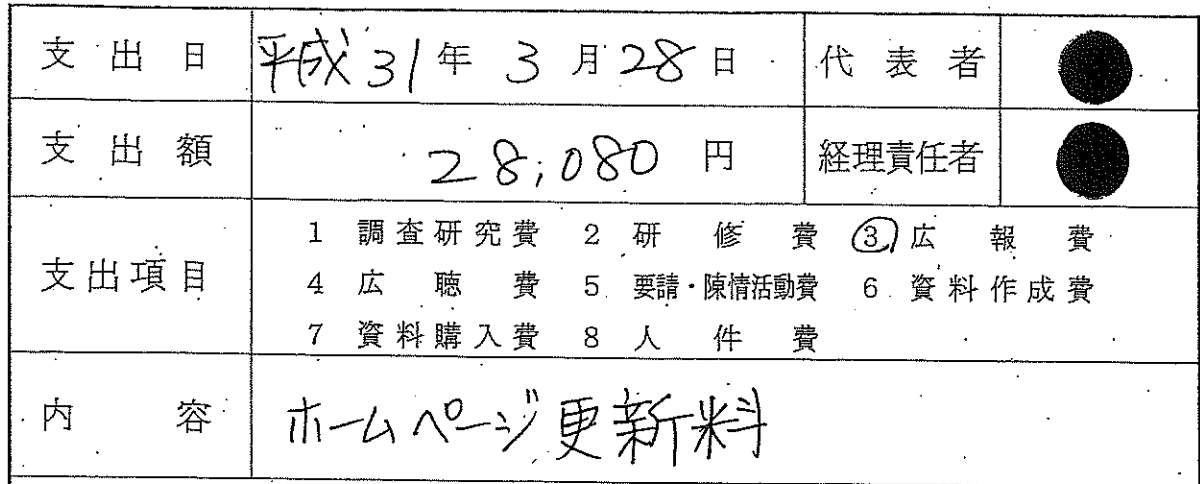 支出日 平成31年3月28日 代表者
支出額 28,080円 経理責任者
支出項目
1 調査研究費 2 研修費 ③広報費
4 広聴費 5 要請・陳情活動費 6 資料作成費
7 資料購入費 8 人件費
内容 ホームページ更新料